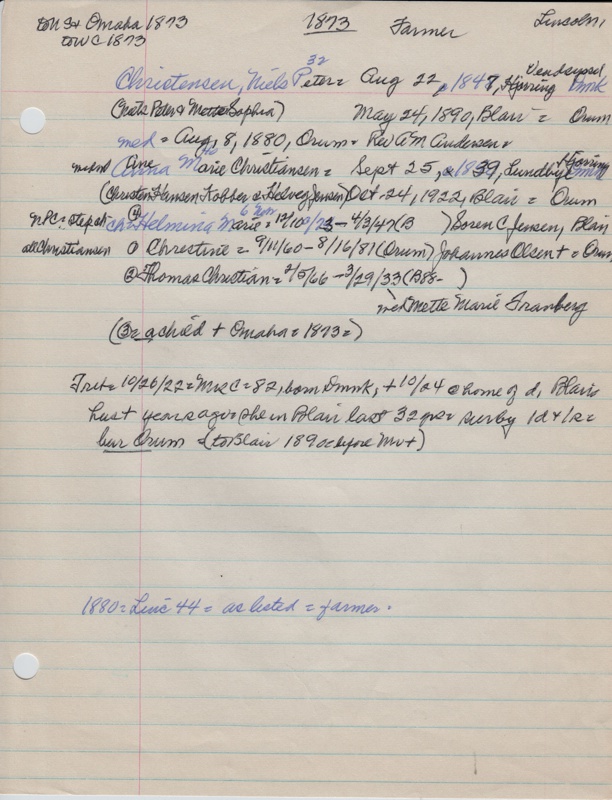 to US + Omaha 1873 1873 Farmer Lincoln,
to WC 1873
32 Vendsyssel
Christensen, Niels Peter = Aug 22, 1847, Hjorring Dmrk
(Nels Peter & Mette Sophia) May 24, 1890, Blair = Orum
med = Aug, 8, 1880, Orum = Rev AM Andersen
Marie Christiansen = Sept 25, 1839, Lundby Hjorring Dmrk
(Christen Hansen & Helveg Jensen) Oct-24, 1922, Blair = Orum
NPC = step ch ch = Helmina Marie = - 4/3/47 (B ) Soren C Jensen, Blair
all Christiansen Christine = 9/11/60 - 8/16/81 (Orum) Johannes Olsen + = Orum
② Thomas Christian = 2/5/66 - 3/29/33 (B88- )
med Mette Marie Franberg
(3 = a child + Omaha = 1873 =)
Trib = 10/26/22 = Mrs C = 82, born Dmrk, + 10/24 @ home of d, Blair
hus + years ago = she in Blair last 32 yrs = surby 1d + 1s =
bur Orum = (to Blair 1890 = before Mr +)
1880 = Linc 44 = as listed = farmer.